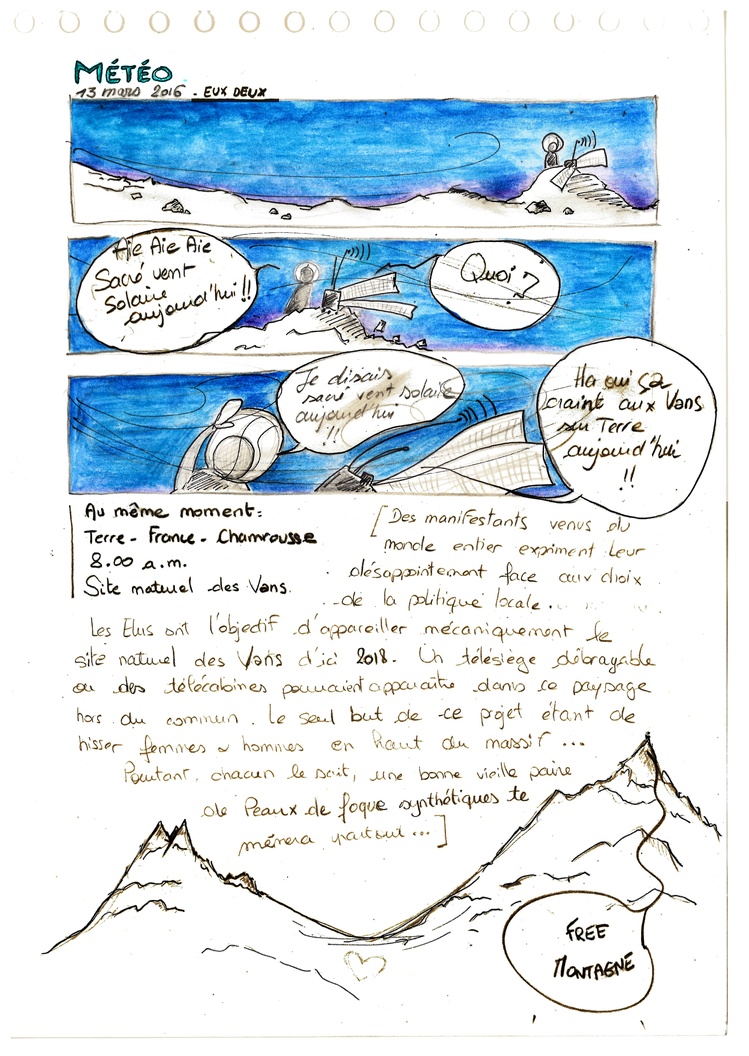 MÉTÉO
13 mars 2016 - EUX DEUX
Aïe Aïe Aïe
Sacré vent
solaire
aujourd'hui !!
Quoi ?
Je disais
sacré vent solaire
aujourd'hui
!!
Ha oui ça
craint aux Vans
sur Terre
aujourd'hui
!!
Au même moment:
Terre - France - Chamrousse
8.00 a.m.
Site naturel des Vans.
[Des manifestants venus du
monde entier expriment leur
désappointement face aux choix
de la politique locale...
Les Elus ont l'objectif d'appareiller mécaniquement le
site naturel des Vans d'ici 2018. Un télésiège débrayable
ou des télécabines pourraient apparaître dans ce paysage
hors du commun. Le seul but de ce projet étant de
hisser femmes & hommes en haut du massif...
Pourtant, chacun le sait, une bonne vieille paire
de Peaux de foque synthétiques te
mènera partout...]
FREE
MONTAGNE